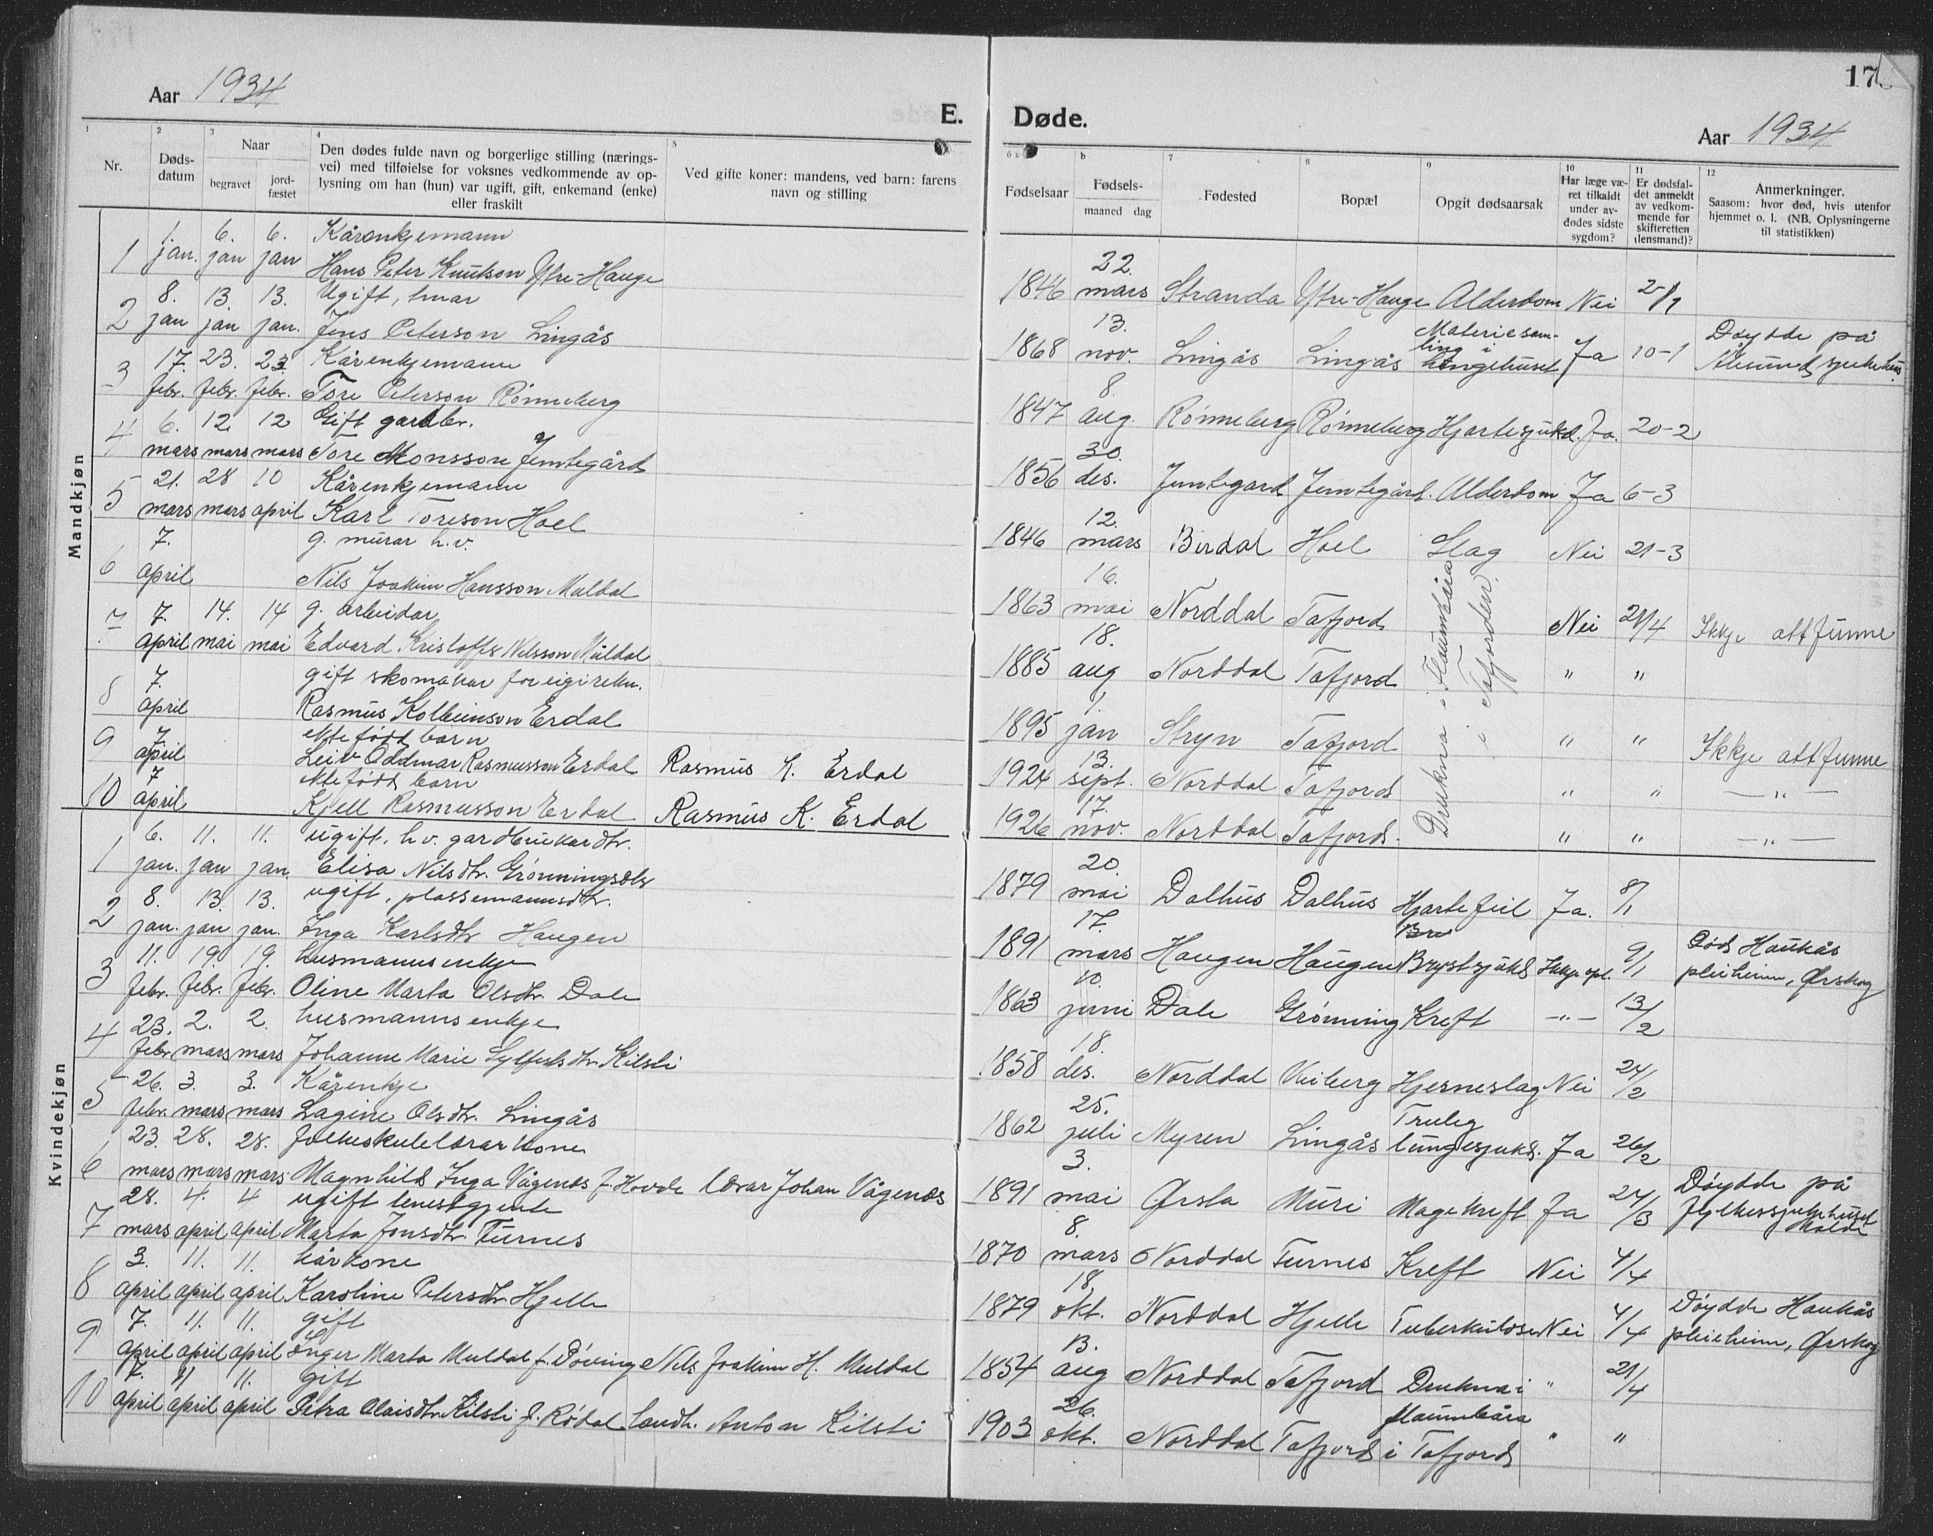 Aar 1934
E.
Døde.
Aar 1934
17
1 2 3 4 5
Nr.
Døds-
datum
Naar
begravet
jord-
fæstet
Den dødes fulde navn og borgerlige stilling (nærings-
vei) med tilføielse for voksnes vedkommende av op-
lysning om han (hun) var ugift, gift, enkemand (enke)
eller fraskilt
Ved gifte koner: mandens, ved barn: farens
navn og stilling
6 a b 7 8 9 10 11 12
Fødselsaar
Fødsels-
maaned dag
Fødested
Bopæl
Opgit dødsaarsak
Har læge væ-
ret tilkaldt
under av-
dødes sidste
sygdom?
Er dødsfal-
det anmeldt
av vedkom-
mende for
skifteretten
(lensmand)?
Anmerkninger.
Saasom: hvor død, hvis utenfor
hjemmet o. l. (NB. Oplysningerne
til statistikken)
Mandkjøn
1. 6. 6. Kårenkjemann
1 jan. jan jan Hans Peter Knutson Ytre-Hauge
8. 13. 13. Ugift, snar
2 jan jan jan. Jens Peterson Lingås
17. 23. 23. Kårenkjemann
3 febr. febr. febr. Tore Peterson Rønneberg
6. 12. 12 Gift gardbr.
4 mars mars mars Tore Monsson Jemtegård
21. 28 10 Kårenkjemann
5 mars mars april Karl Toreson Hoel
7. g. murar h.v.
6 april Nils Joakim Hansson Muldal
7. 14. 14 g. arbeidar
7 april mai mai Edvard Kristoffer Nilsson Muldal
7. gift skomakar for eigi rekn.
8 april Rasmus Kolbeinson Erdal
7 ekte født barn
9 april Leiv Oddmar Rasmusson Erdal Rasmus K. Erdal
7 ekte født barn
10 april Kjell Rasmusson Erdal Rasmus K. Erdal
Kvindekjøn
6. 11. 11. ugift, h.v. gardbrukardtr.
1 jan. jan jan. Elisa Nilsdtr. Grønningsæter
8. 13. 13. ugift, plassemannsdtr.
2 jan. jan jan. Inga Karlsdtr Haugen
11. 19. 19. husmannsenkje
3 febr. febr. febr. Oline Marta Olsdtr. Dale
23. 2. 2. husmannsenkje
4 febr mars mars Johanne Marie Sylfestsdtr Kilsti
26. 3. 3. Kårenkje
5 febr. mars mars Lagine Olsdtr. Lingås
23. 28. 28. folkeskulelærarkone
6 mars mars mars Magnhild Inga Vågenes f. Hovde lærar Johan Vågenes
28. 4. 4 ugift tenestgjente
7 mars april april Marta Jonsdtr. Furnes
3. 11. 11. kårkone
8 april april april Karoline Petersdtr Hjelle
7. 11. 11. gift
9 april april april Inger Marta Muldal f. Døving Nils Joakim H. Muldal
7. 11 11. gift
10 april april april Petra Olaisdtr. Kilsti f. Rødal Landh. Anton Kilsti
22.
1846 mars Stranda Ytre-Hauge Alderdom Nei 2/1
13. Materiesam- Døydde på
1868 nov. Lingås Lingås ling i lungehuset Ja 10-1 Ålesund sjukehus
8.
1847 aug. Rønneberg Rønneberg Hjartesjukd. Ja. 20-2
30.
1856 des. Jemtegard Jemtegård. Alderdom Ja 6-3
12.
1846 mars Birdal Hoel Slag Nei 21-3
16.
1863 mai Norddal Tafjord Nei 21/4 Ikkje attfunne
Drukna i Flaumbåra
i Tafjorden.
18.
1885 aug Norddal Tafjord " "
1
1895 jan Stryn Tafjord " " Ikkje attfunne
13.
1924 sept. Norddal Tafjord " " —"—
17.
1926 nov. Norddal Tafjord. " " —"—
20
1879 mai Dalhus Dalhus Hjartefeil Ja. 8/1
17. Bre Død Haukås
1891 mars Haugen Haugen Brystsjukd Ikkje opl. 9/1 pleieheim, Ørskog
10.
1863 juni Dale Grønning Kreft —"— 13/2
18.
1858 des. Norddal Viiberg Hjerneslag Nei 24/2
25. Truleg
1862 juli Myren Lingås lungesjukd. Ja 26/2
3. Døydde på
1891 mai Ørsta Muri Magekreft Ja 24/3 fylkessjukehuset Molde
8.
1870 mars Norddal Furnes Kreft Nei 4/4
18. Døydde Haukås
1879 okt. Norddal Hjelle Tuberkulose Nei 4/4 pleieheim, Ørskog
13.
1854 aug Norddal Tafjord Drukna i " 21/4
26. flaumbåra
1903 okt. Norddal Tafjord i Tafjord " "